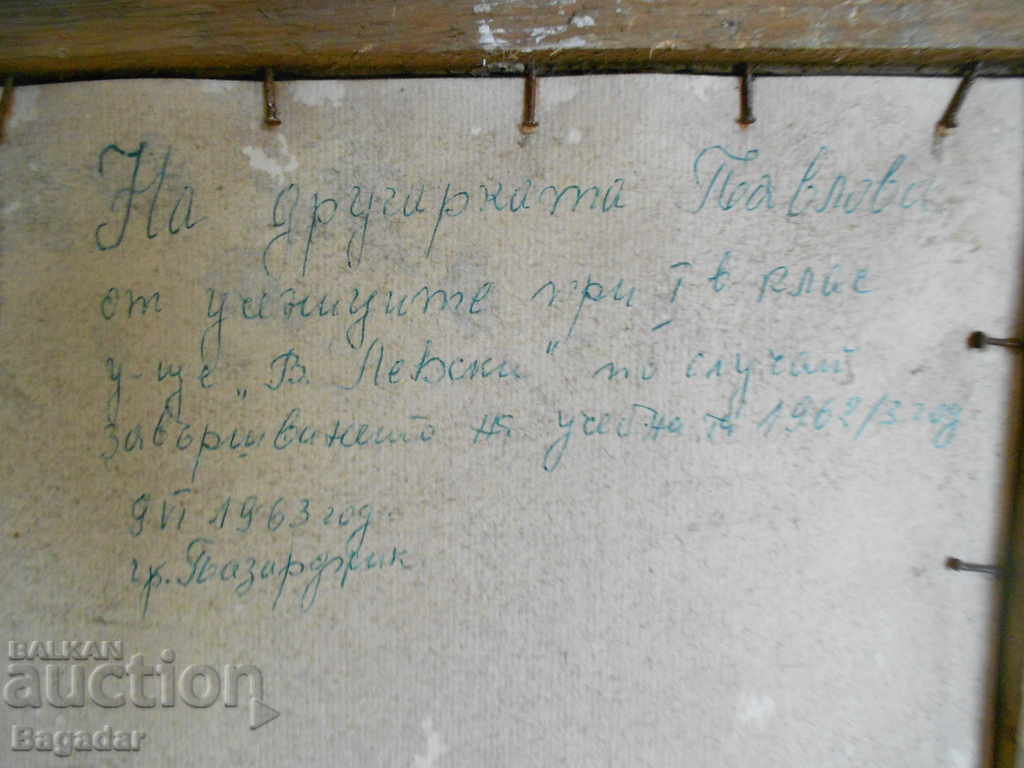 На другарката Павлова
от учениците при I в клас
у-ще „В. Левски“ по случай
завършването на учебната 1962/3 год.
9 VI 1963 год.
гр. Пазарджик
BALKAN
auction
Bagadar